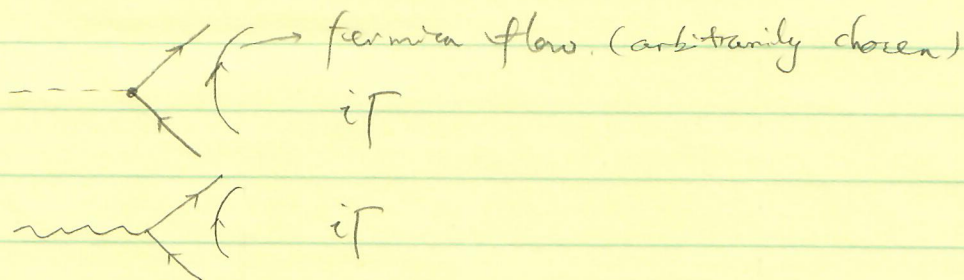 fermion flow. (arbitrarily chosen)
iΓ
iΓ